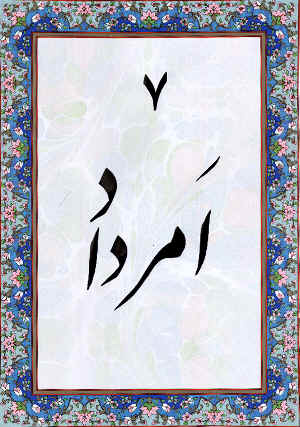 ۷
اَمرداد